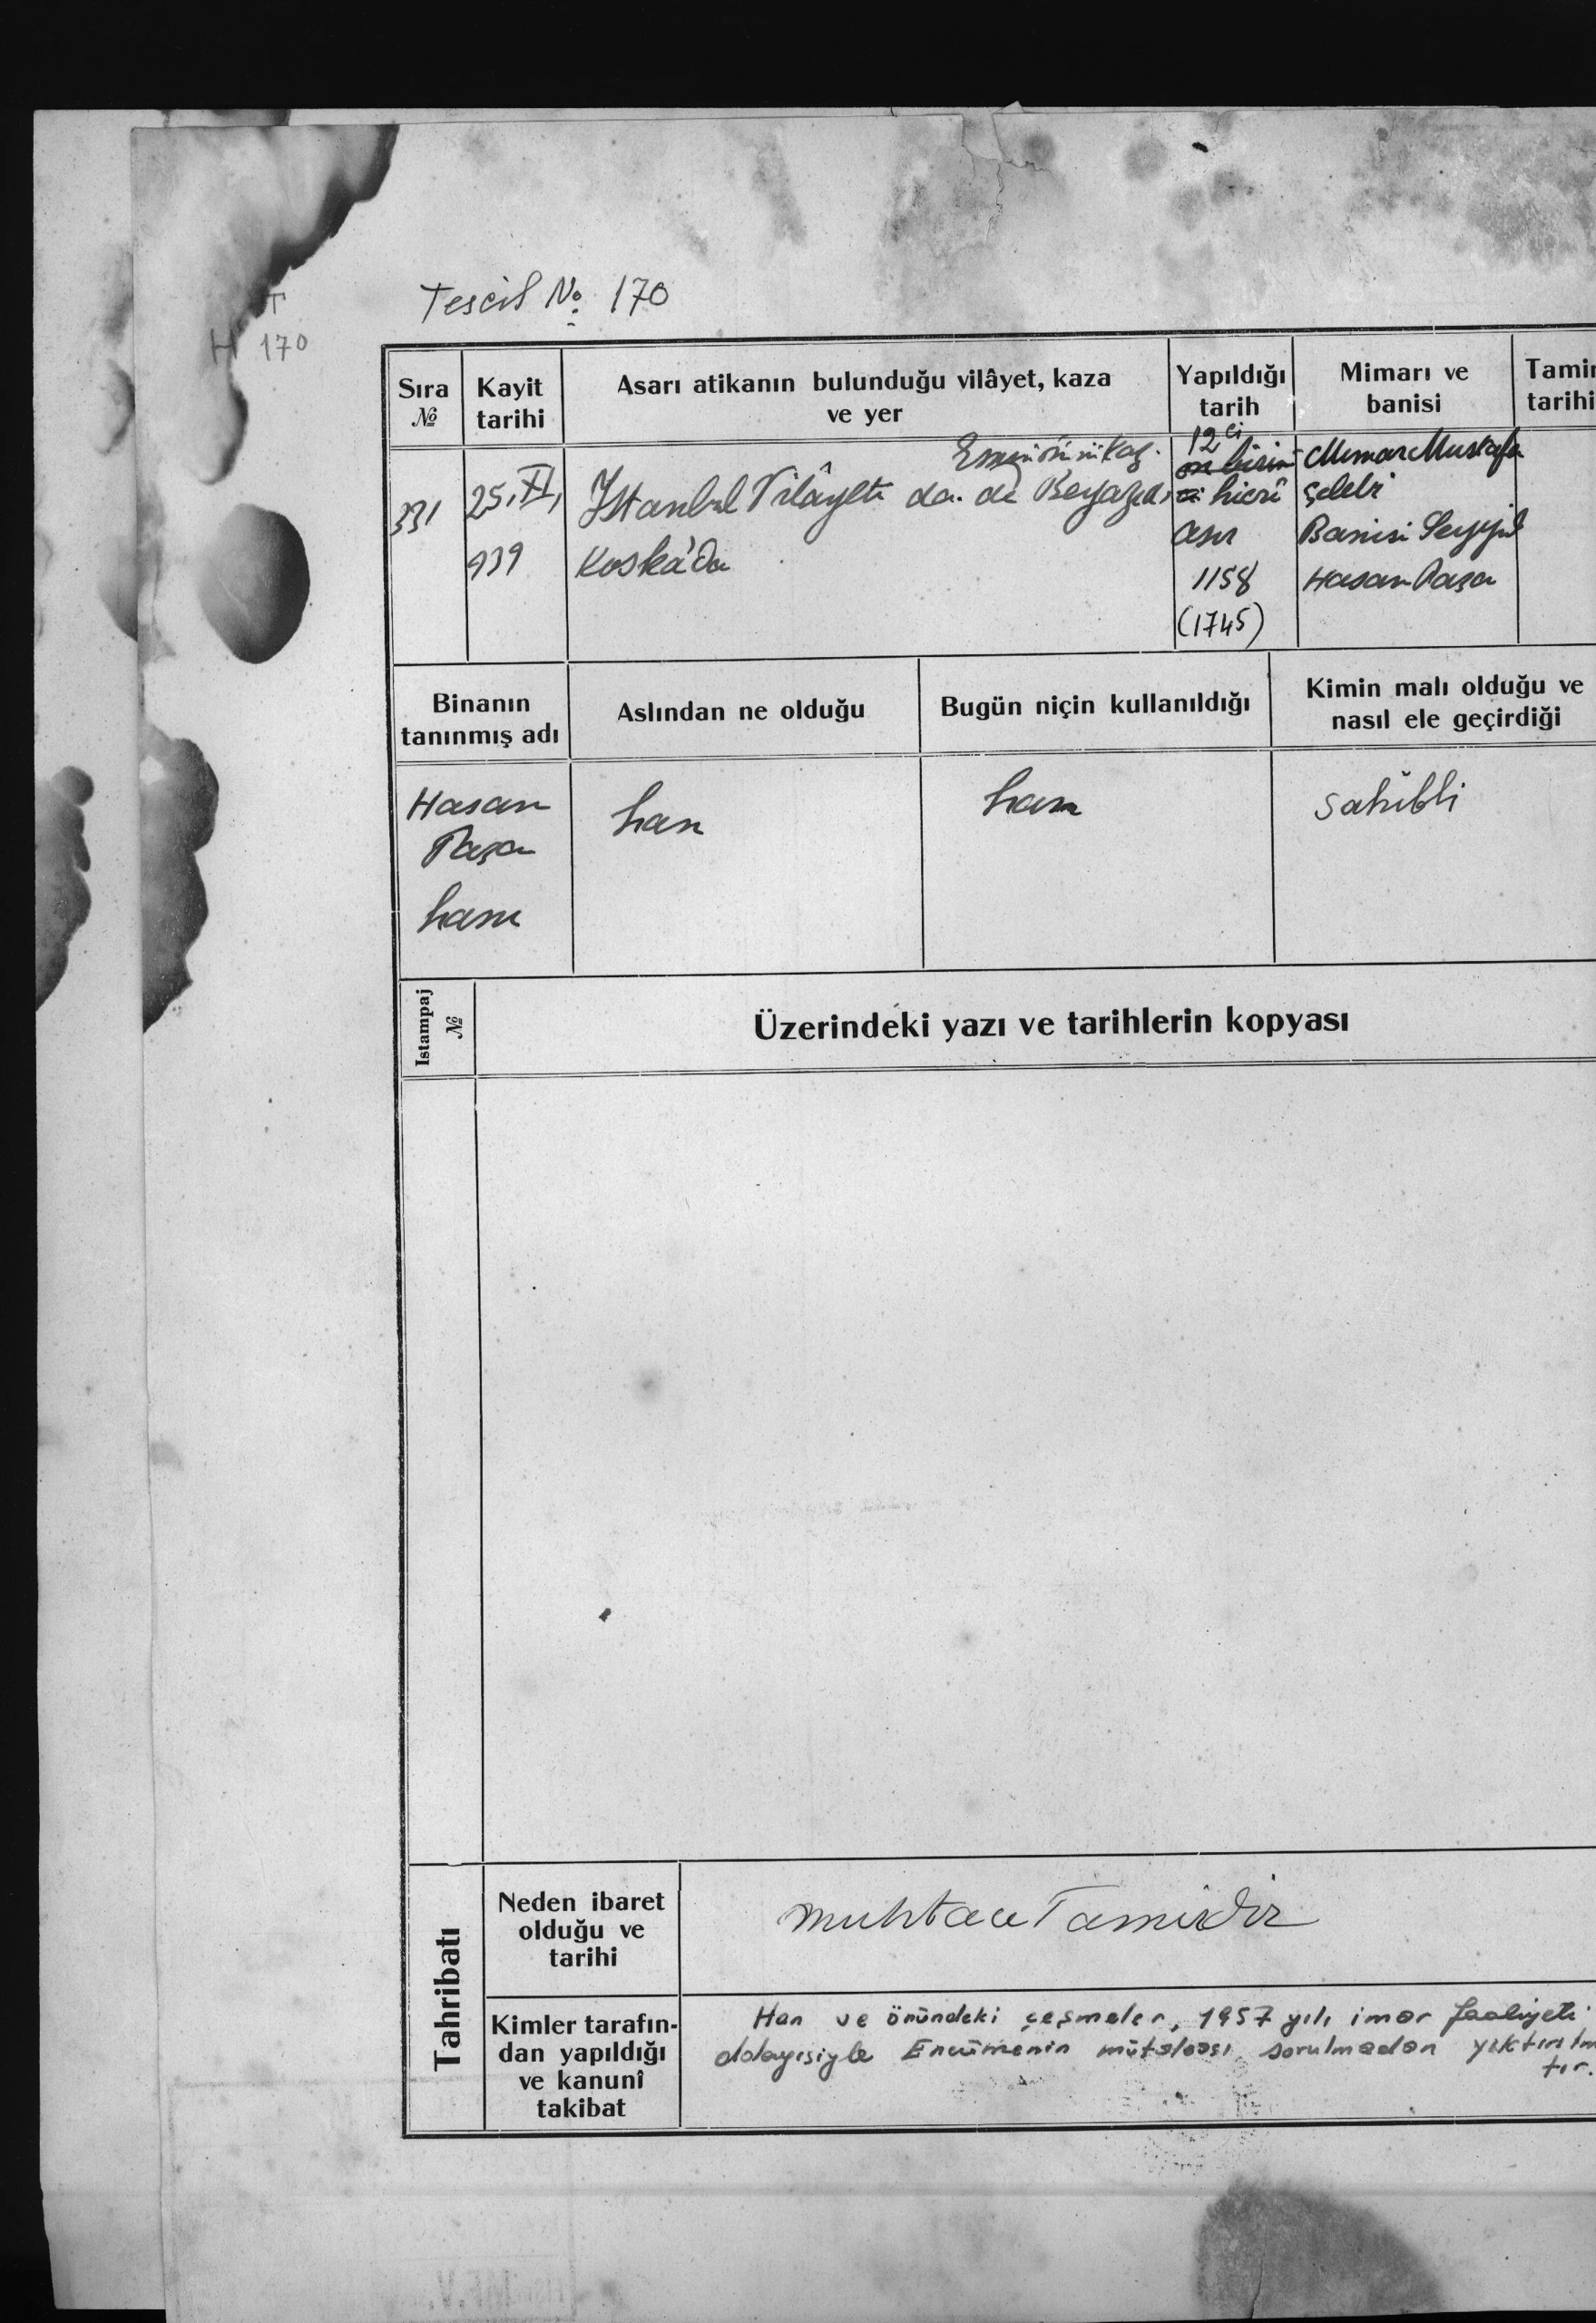 Tescil No. 170
T
H 170
Sıra
No
Kayit
tarihi
Asarı atikanın bulunduğu vilâyet, kaza
ve yer
Yapıldığı
tarih
Mimarı ve
banisi
Tamir
tarihi
331
25.XI,
939
Eminönü kaz.
Istanbul Vilâyeti da. de Beyazıd,
Koska'da
12 ci
on birin
ci hicrî
asır
1158
(1745)
Mimar Mustafa
Çelebi
Banisi Seyyid
Hasan Paşa
Binanın
tanınmış adı
Aslından ne olduğu
Bugün niçin kullanıldığı
Kimin malı olduğu ve
nasıl ele geçirdiği
Hasan
Paşa
hanı
han
han
sahibli
Istampaj
No
Üzerindeki yazı ve tarihlerin kopyası
Tahribatı
Neden ibaret
olduğu ve
tarihi
muhtacı Tamirdir
Kimler tarafın-
dan yapıldığı
ve kanunî
takibat
Han ve önündeki çeşmeler, 1957 yılı imar faaliyeti
dolayısiyle Encümenin mütaleası sorulmadan yıktırılm
tır.